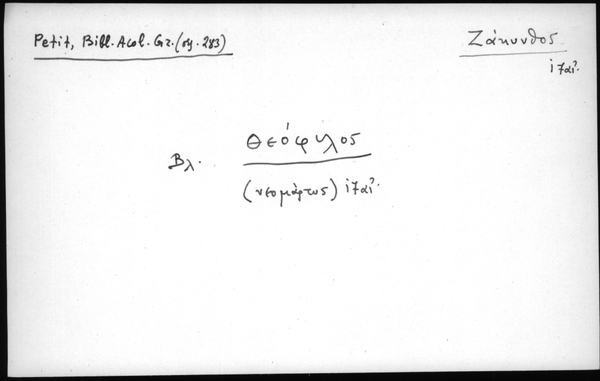 Petit, Bibl. Acol. Gr. (σς. 283)
Ζάκυνθος
ιζαι?
Βλ. Θεόφιλος
(νεομάρτυς) ιζαι?